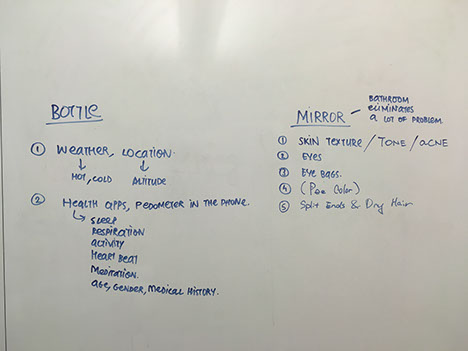 BOTTLE
① WEATHER, LOCATION.
HOT, COLD ALTITUDE
② HEALTH APPS, PEDOMETER IN THE PHONE.
SLEEP
RESPIRATION
ACTIVITY
HEART BEAT
MEDITATION.
AGE, GENDER, MEDICAL HISTORY.
MIRROR
BATHROOM
ELIMINATES
A LOT OF PROBLEM.
① SKIN TEXTURE / TONE / ACNE
② EYES
③ EYE BAGS.
④ (Pee Color)
⑤ Split Ends & Dry Hair